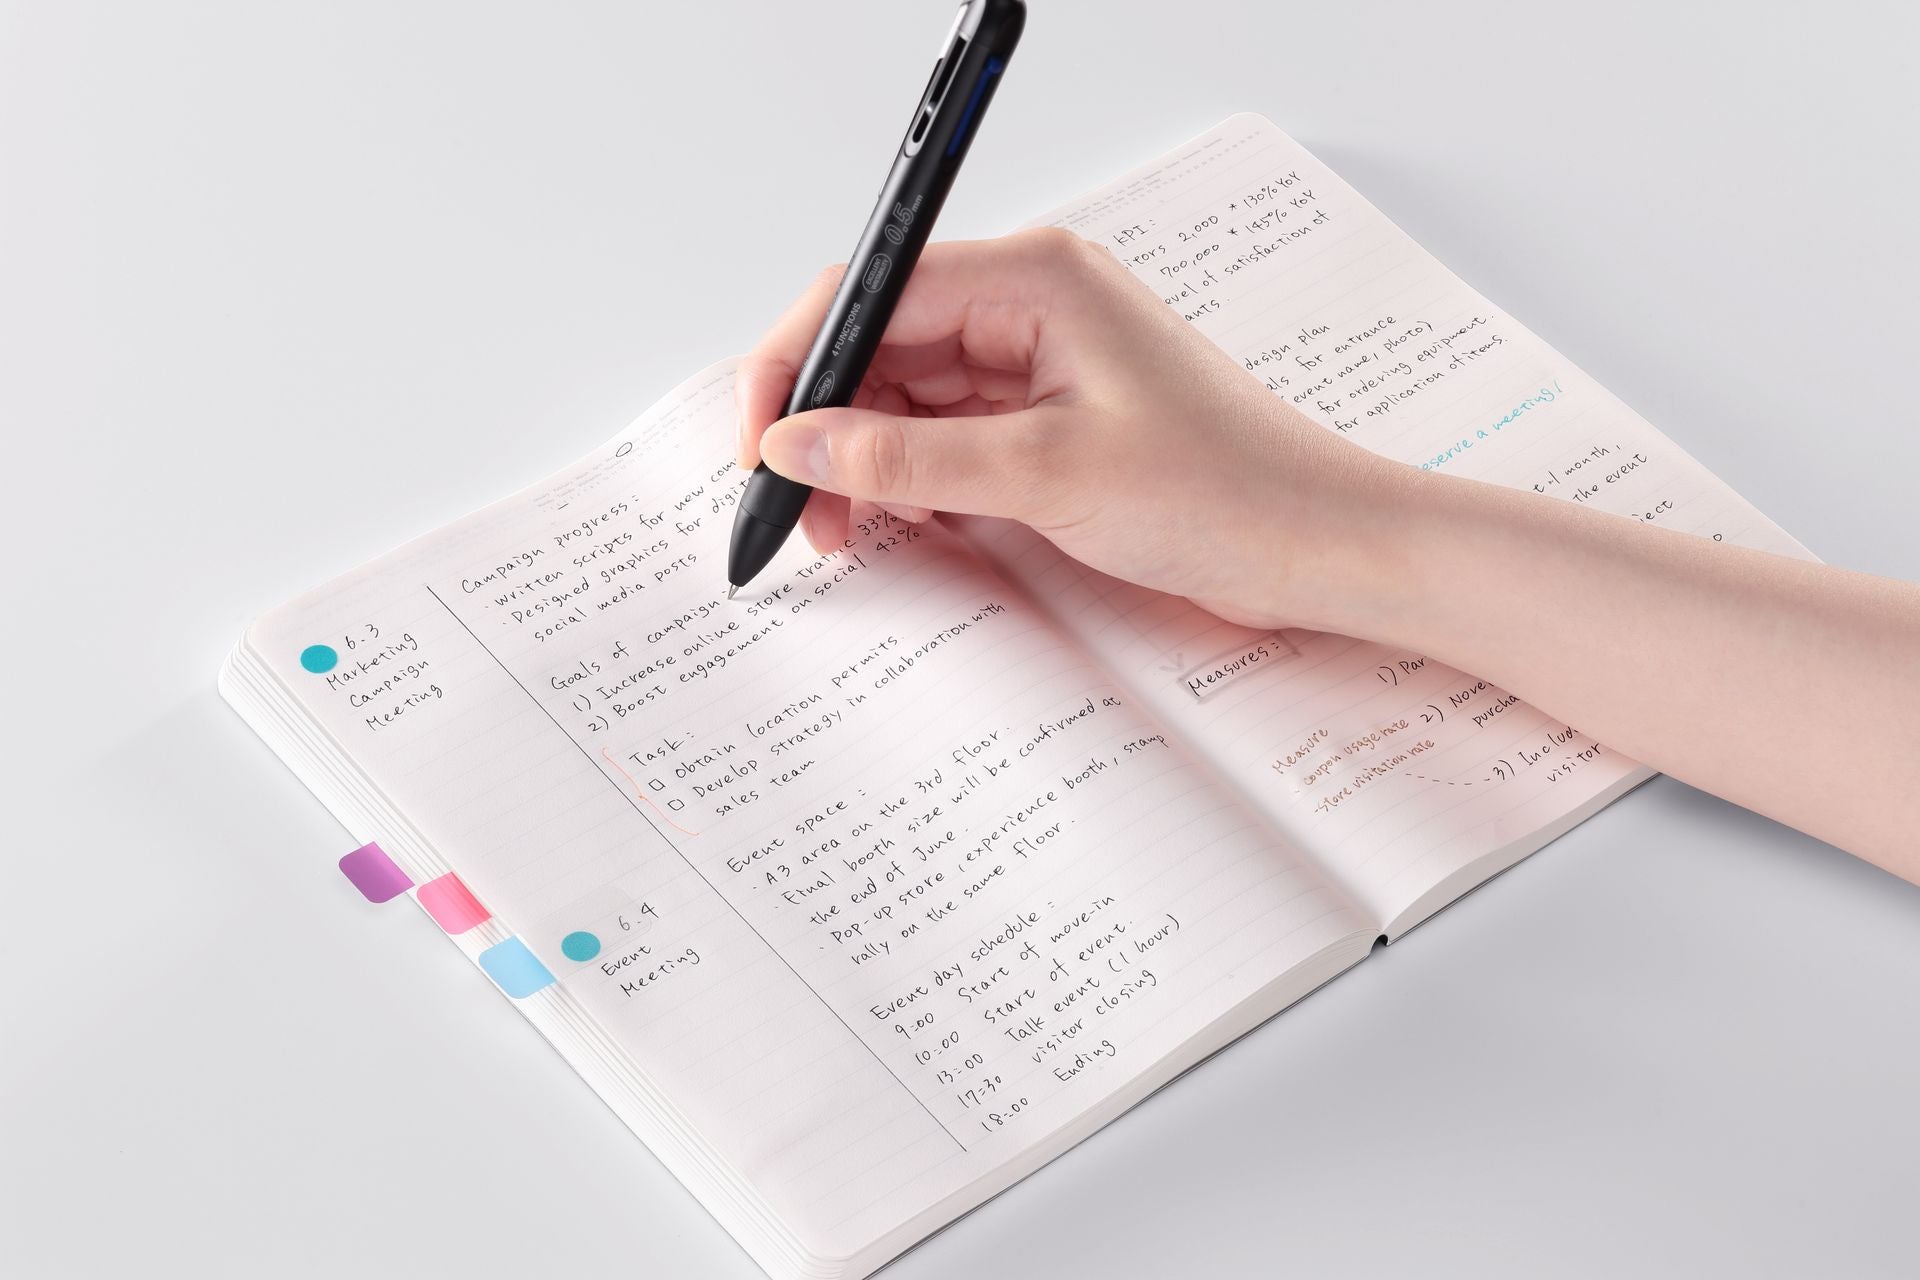 0.5mm
EXCELLENT
WRITABILITY
4 FUNCTIONS
PEN
Stalogy
6.3
Marketing
Campaign
Meeting
Campaign progress:
· written scripts for new
· Designed graphics for
social media posts
Goals of campaign:
1) Increase online store traffic 33%
2) Boost engagement on social 42%
Task:
□ obtain location permits.
□ Develop strategy in collaboration with
sales team
6.4
Event
Meeting
Event space:
· A3 area on the 3rd floor.
· Final booth size will be confirmed at
the end of June.
· Pop-up store, experience booth, stamp
rally on the same floor.
Event day schedule:
9:00 Start of move-in
10:00 Start of event.
13:00 Talk event (1 hour)
17:30 visitor closing
18:00 Ending
KPI:
2,000 * 130% YoY
700,000 * 145% YoY
of satisfaction of
design plan
for entrance
event name, photo)
for ordering equipment.
for application of items.
a meeting!
month,
the event
Measures:
1)
2)
3)
visitor
Measure
· coupon usage rate
· Store visitation rate